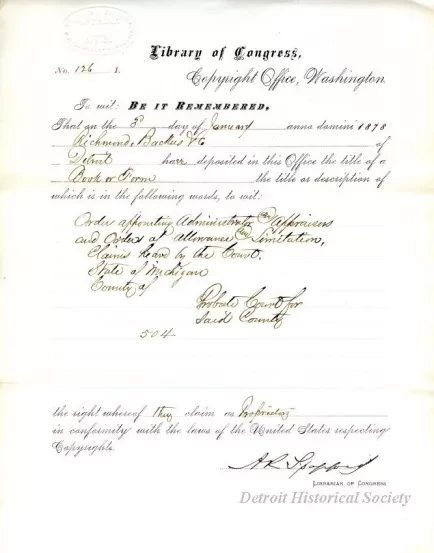 Library of Congress,
No. 126 I.
Copyright Office, Washington.
To wit: BE IT REMEMBERED,
That on the 3d day of January anno domini 1878
Richmond, Backus & Co of
Detroit have deposited in this Office the title of a
Book or Form the title or description of
which is in the following words, to wit:
Order appointing Administrator Appraisers
and Orders of Allowance Limitation,
Claims heard by the Court.
State of Michigan
County of
Probate Court for
Said County
504
the right whereof they claim as Proprietors
in conformity with the laws of the United States respecting
Copyrights.
A R Spofford
LIBRARIAN OF CONGRESS.
Detroit Historical Society